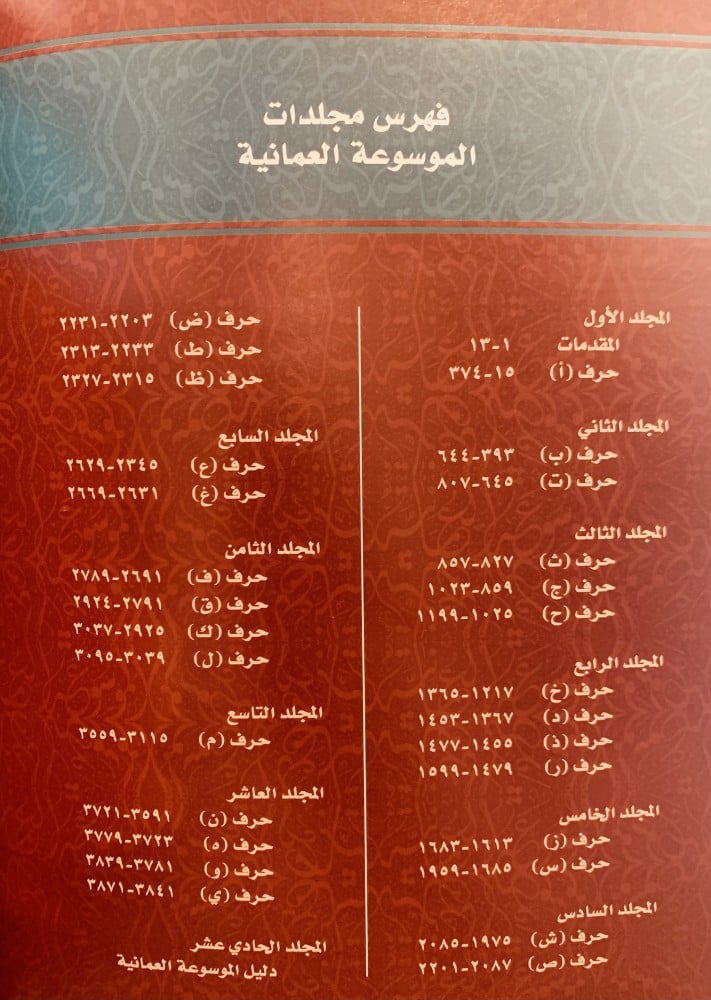 فهرس مجلدات
الموسوعة العمانية
المجلد الأول
المقدمات ١-١٣
حرف (أ) ١٥-٣٧٤
المجلد الثاني
حرف (ب) ٣٩٣-٦٤٤
حرف (ت) ٦٤٥-٨٠٧
المجلد الثالث
حرف (ث) ٨٢٧-٨٥٧
حرف (ج) ٨٥٩-١٠٢٣
حرف (ح) ١٠٢٥-١١٩٩
المجلد الرابع
حرف (خ) ١٢١٧-١٣٦٥
حرف (د) ١٣٦٧-١٤٥٣
حرف (ذ) ١٤٥٥-١٤٧٧
حرف (ر) ١٤٧٩-١٥٩٩
المجلد الخامس
حرف (ز) ١٦١٣-١٦٨٣
حرف (س) ١٦٨٥-١٩٥٩
المجلد السادس
حرف (ش) ١٩٧٥-٢٠٨٥
حرف (ص) ٢٠٨٧-٢٢٠١
حرف (ض) ٢٢٠٣-٢٢٣١
حرف (ط) ٢٢٣٣-٢٣١٣
حرف (ظ) ٢٣١٥-٢٣٢٧
المجلد السابع
حرف (ع) ٢٣٤٥-٢٦٢٩
حرف (غ) ٢٦٣١-٢٦٦٩
المجلد الثامن
حرف (ف) ٢٦٩١-٢٧٨٩
حرف (ق) ٢٧٩١-٢٩٢٤
حرف (ك) ٢٩٢٥-٣٠٣٧
حرف (ل) ٣٠٣٩-٣٠٩٥
المجلد التاسع
حرف (م) ٣١١٥-٣٥٥٩
المجلد العاشر
حرف (ن) ٣٥٩١-٣٧٢١
حرف (ه) ٣٧٢٣-٣٧٧٩
حرف (و) ٣٧٨١-٣٨٣٩
حرف (ي) ٣٨٤١-٣٨٧١
المجلد الحادي عشر
دليل الموسوعة العمانية